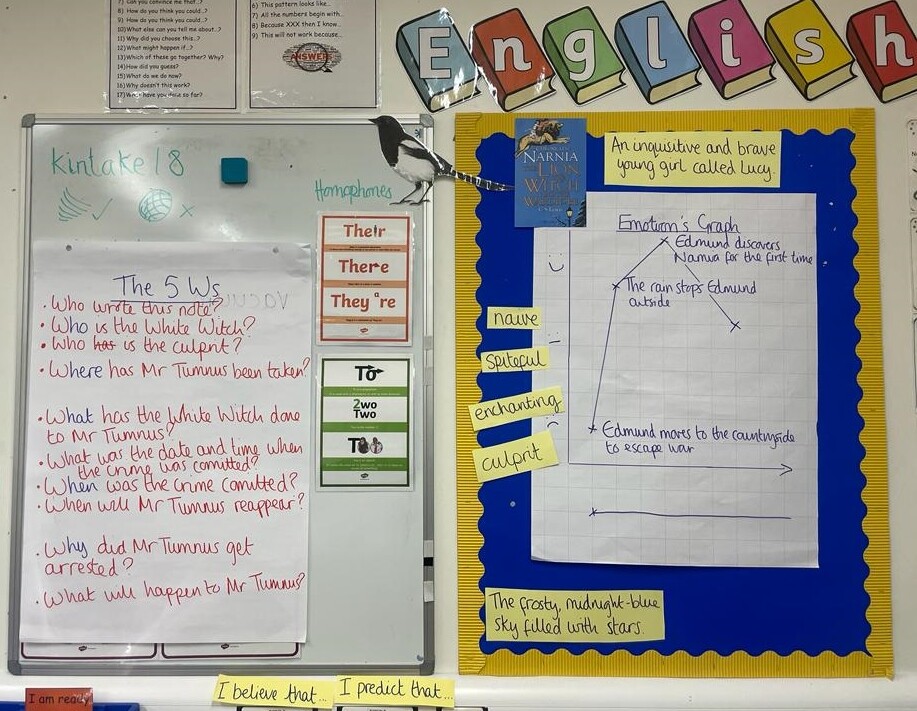 7) Can you convince me that..?
8) How do you think you could..?
9) How do you think you could..?
10) What else can you tell me about...?
11) Why did you choose this..?
12) What might happen if..?
13) Which of these go together? Why?
14) How did you guess?
15) What do we do now?
16) Why doesn't this work?
17) What have you done so far?
6) This pattern looks like...
7) All the numbers begin with...
8) Because XXX then I know...
9) This will not work because...
ANSWER
English
Kintake 18
Homophones
Their
There
They're
To
2wo
Two
The 5 Ws
• Who wrote this note?
• Who is the White Witch?
• Who has is the culprit?
• Where has Mr Tumnus been taken?
• What has the White Witch done
to Mr Tumnus?
• What was the date and time when
the crime was comitted?
• When was the crime comitted?
• When will Mr Tumnus reappear?
• Why did Mr Tumnus get
arrested?
• What will happen to Mr Tumnus?
NARNIA
THE LION
WITCH
WARDROBE
An inquisitive and brave
young girl called Lucy.
Emotion's Graph
Edmund discovers
Narnia for the first time
The rain stops Edmund
outside
Edmund moves to the countryside
to escape war
naive
spiteful
enchanting
culprit
The frosty, midnight-blue
sky filled with stars.
I am ready
I believe that...
I predict that...